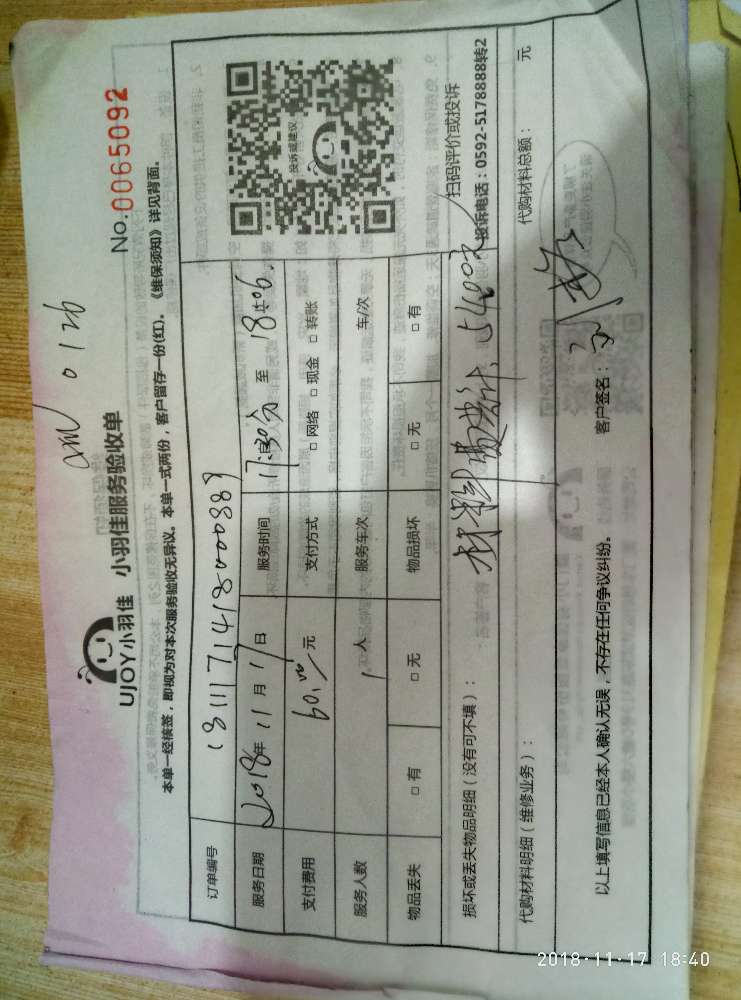 No.0065092
UJOY小羽佳 小羽佳服务验收单
本单一经核签，即视为对本次服务验收无异议。本单一式两份，客户留存一份(红)。《维保须知》详见背面。
订单编号 1811171418000889
服务日期 2018年 11月 17日 服务时间 17:30分 至
支付费用 60.00元 支付方式 □网络 □现金 □转账
服务人数 1人 服务车次 车/次
物品丢失 □有 □无 物品损坏 □无 □有
投诉或建议
扫码评价或投诉
投诉电话：0592-5178888转2
损坏或丢失物品明细（没有可不填）：
代购材料明细（维修业务）： 代购材料总额： 元
以上填写信息已经本人确认无误，不存在任何争议纠纷。 客户签名：刘
2018-11-17 18:40